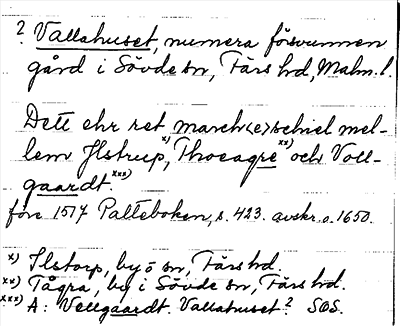 ? Vallahuset, numera försvunnen
gård i Sövde sn, Färs hd, Malm. l.
Dett ehr ret march(e)schiel mel-
lem Jlstrup,x) Thoeagrexx) och Voll-
gaardt.xxx)
före 1517 Palteboken, s. 423. avskr. o. 1650.
x) Ilstorp, by o sn, Färs hd.
xx) Tågra, by i Sövde sn, Färs hd.
xxx) A: Vellgaardt. Vallahuset? SOS.